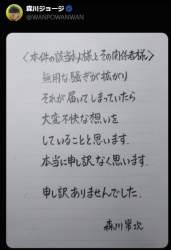 森川ジョージ
@WANPOWANWAN
〈本件の該当御人様とその関係者様〉
無用な騒ぎが拡がり
それが届いてしまっていたら
大変不快な想いを
していることと思います。
本当に申し訳なく思います。
申し訳ありませんでした。
森川常次